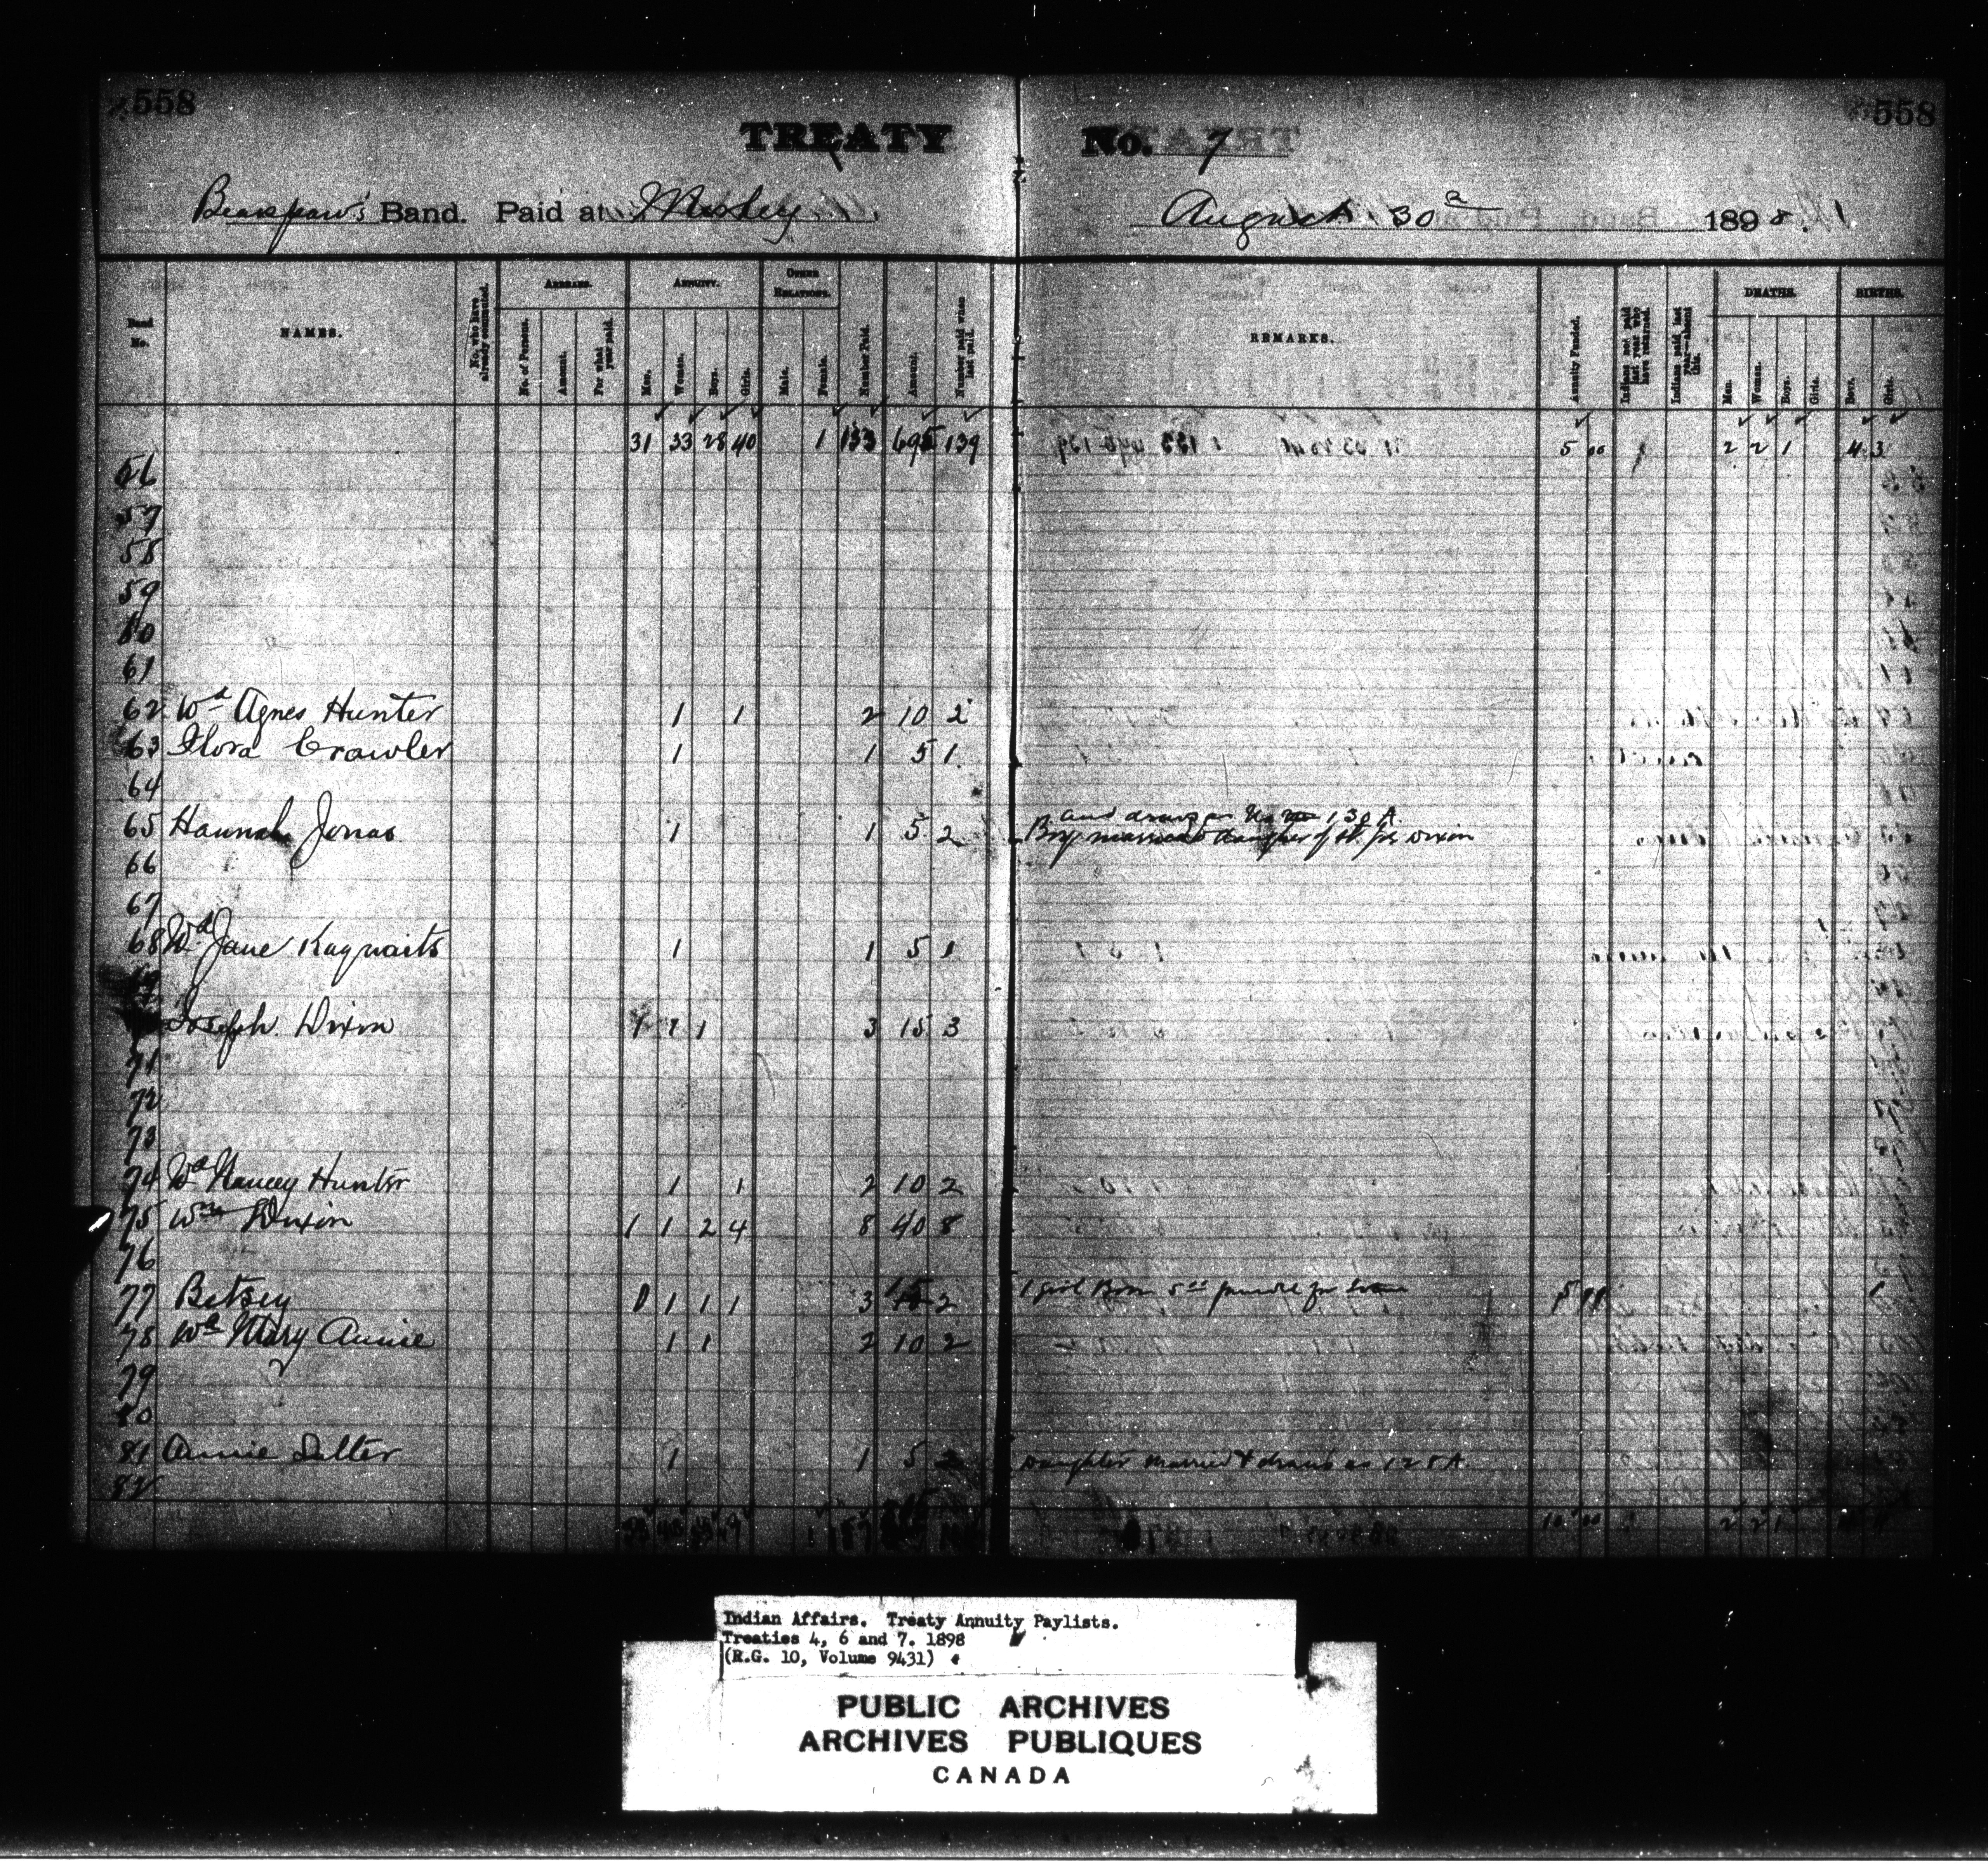 558 558
TREATY No. 7
Bearspaw's Band. Paid at Morley August 30 1898.
Band No. NAMES. No. who have already commuted. ARREARS. No. of Persons. Amount. For what year paid. ANNUITY. Men. Women. Boys. Girls. OTHER RELATIONS. Male. Female. Number Paid. Amount. Number paid when last paid. REMARKS. Annuity Funded. Indians not paid last year who have returned. Indians paid last year—absent this. DEATHS. Men. Women. Boys. Girls. BIRTHS. Boys. Girls.
31 33 28 40 1 133 695 139 5 00 1 2 2 1 4 3
56
57
58
59
60
61
62 Wd Agnes Hunter 1 1 2 10 2
63 Flora Crawler 1 1 5 1
64
and draws as No 130 A.
65 Hannah Jonas 1 1 5 2 Boy married daughter of Dixon
66
67
68 Wd Jane Kaquaits 1 1 5 1
69
Joseph Dixon 1 1 1 3 15 3
71
72
73
74 Wd Nancy Hunter 1 1 2 10 2
75 Wm Dixon 1 1 2 4 8 40 8
76
77 Betsey 1 1 1 3 15 2 1 girl Born 5 1
78 Wd Mary Annie 1 1 2 10 2
79
80
81 Annie Salter 1 1 5 2 Daughter married & draws as 128 A.
82
10 00 2 2 1
Indian Affairs. Treaty Annuity Paylists.
Treaties 4, 6 and 7. 1898
(R.G. 10, Volume 9431)
PUBLIC ARCHIVES
ARCHIVES PUBLIQUES
CANADA